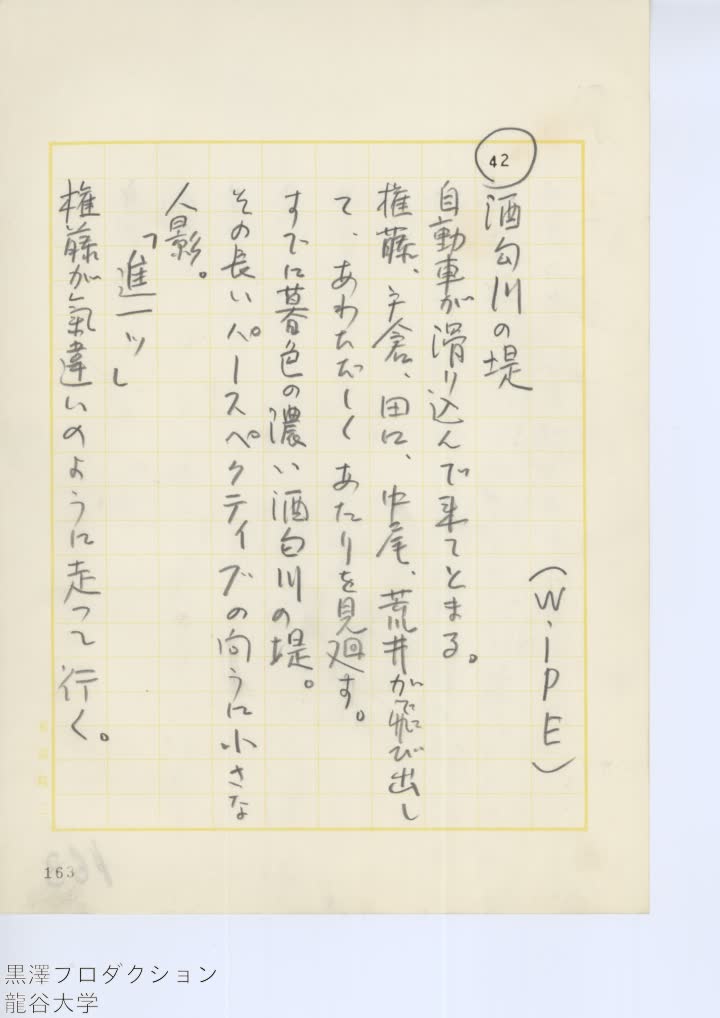 (WiPE)
42
酒匂川の堤
自動車が滑り込んで来てとまる。
権藤、戸倉、田口、中尾、荒井が飛び出し
て、あわただしくあたりを見廻す。
すでに暮色の濃い酒匂川の堤。
その長いパースペクティブの向うに小さな
人影。
「進一ッ」
権藤が氣違いのように走って行く。
163
黒澤プロダクション
龍谷大学